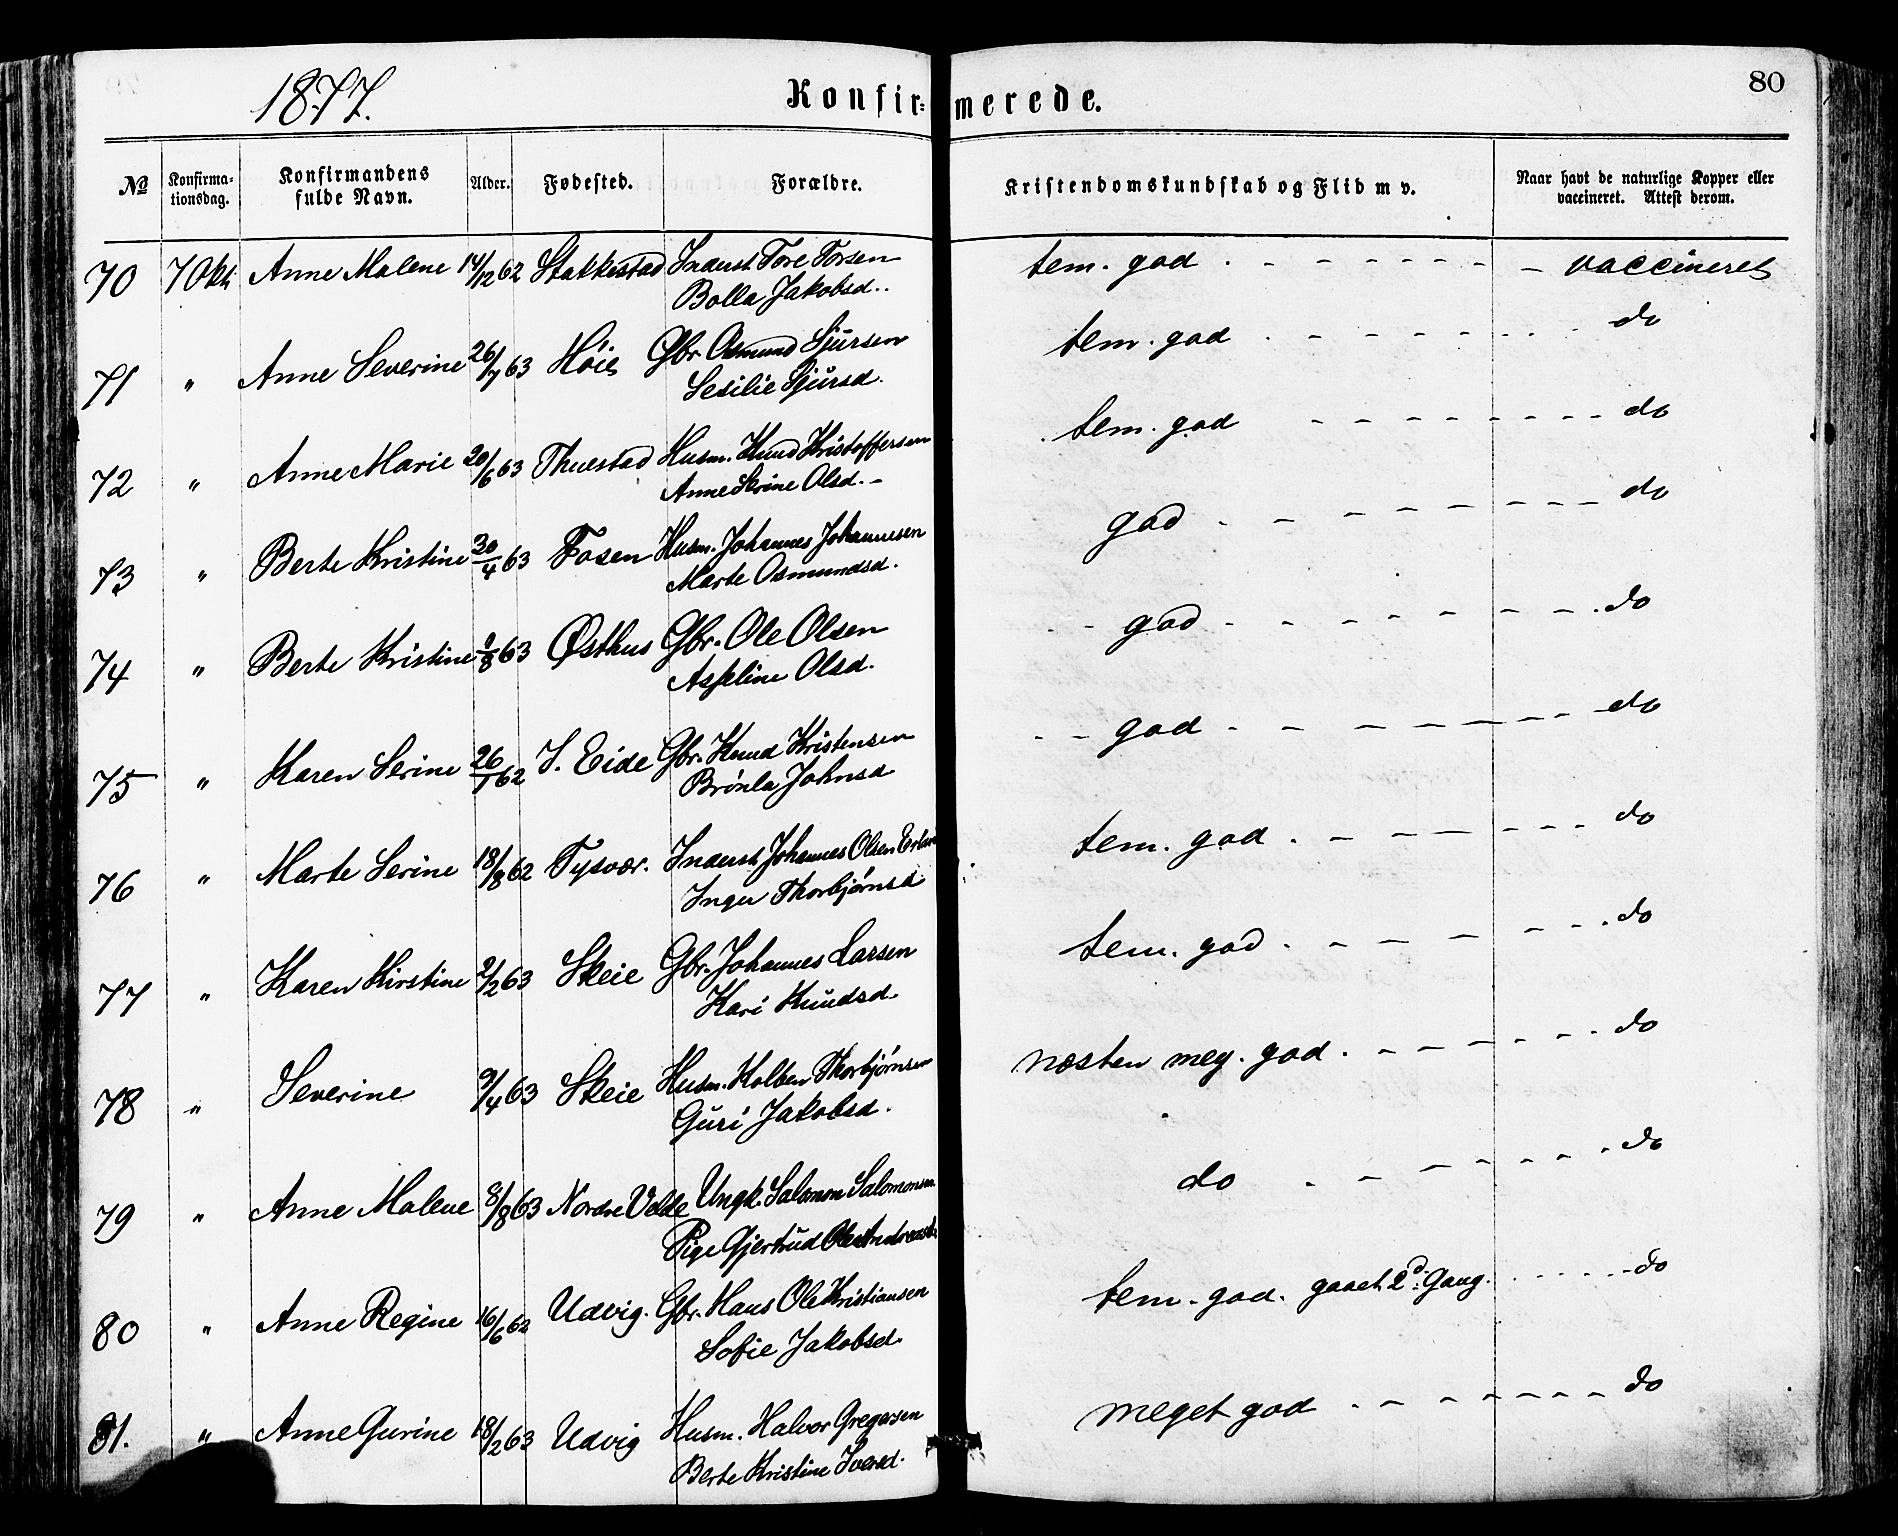 80
1877. Konfir- merede.
No Konfirmationsdag. Konfirmandens fulde Navn. Alder. Fødested. Forældre. Kristendomskundskab og Flid m v. Naar havt de naturlige Kopper eller vaccineret. Attest derom.
70 7 Okt. Anne Malene 14/12 62 Stakkestad Inderst Tore Torsen tem. god - - - - - - - vaccineret
Bolla Jakobsd.
71 " Anne Severine 26/7 63 Høie Gbr. Osmund Sjursen tem. god - - - - - - do
Sesilie Sjursd.
72 " Anne Marie 20/6 63 Thuestad Husm. Knud Kristoffersen tem. god - - - - - - - do
Anne Serine Olsd.
73 " Berte Kristine 30/4 63 Fosen Husm. Johannes Johannesen god - - - - - - - do
Marte Osmundsd.
74 " Berte Kristine 9/8 63 Østhus Gbr. Ole Olsen god - - - - - - - do
Asseline Olsd.
75 " Karen Serine 26/1 62 S. Eide Gbr. Knud Kristensen god - - - - - - - do
Brønla Johnsd
76 " Marte Serine 18/8 62 Tysvær. Inderst Johannes Olsen tem. god - - - - - - - do
Inger Thorbjørnsd
77 " Karen Kirstine 2/2 63 Skeie Gbr. Johannes Larsen tem. god - - - - - - - do
Kari Knudsd.
78 " Severine 9/4 63 Skeie Husm. Kolben Thorbjørnsen næsten meg. god - - - - - - do
Guri Jakobsd.
79 " Anne Malene 8/8 63 Nordre Velde Ungk. Salomon Salomonsen do - - - - - - - do
Pige Gjertrud Ole Andreasd.
80 " Anne Regine 16/6 62 Udvig. Gbr. Hans Ole Kristiansen tem. god. gaaet 2d. Gang. - - - - do
Sofie Jakobsd.
81. " Anne Gurine 18/2 63 Udvig Husm. Halvor Gregersen meget god - - - - - - - do
Berte Kristine Iversd.